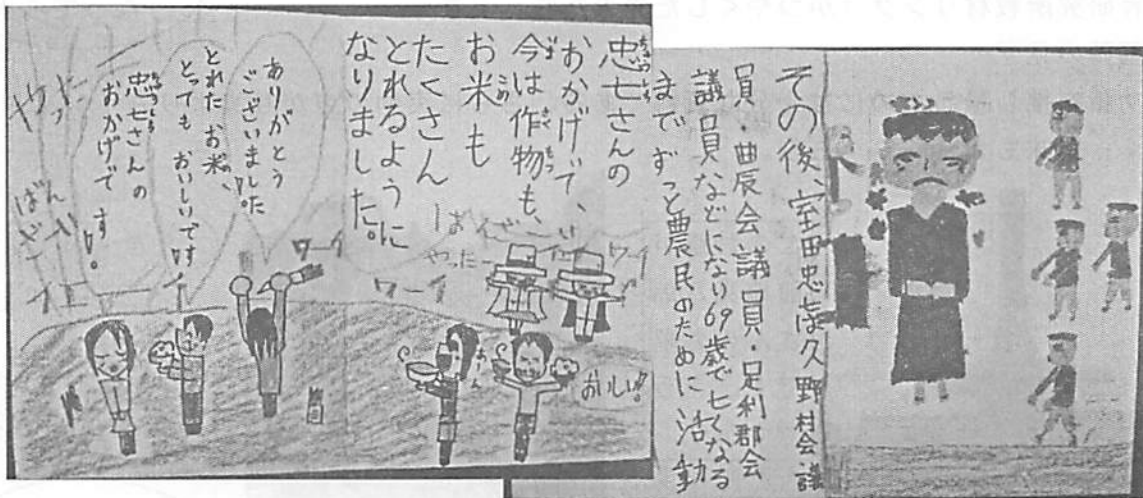 その後、室田忠七は久野村会議
員・農会議員・足利郡会
議員などになり69歳で亡くなる
までずっと農民のために活動
忠七さんの
おかげで、
今は作物も、
お米も
たくさん
とれるように
なりました。
ありがとう
ございました!!。
とれたお米、
とっても おいしいです!!
忠七さんの
おかげで
す!!。
ワーイ
やったー
ワーイ
ワーイ
あーん
おいしい!